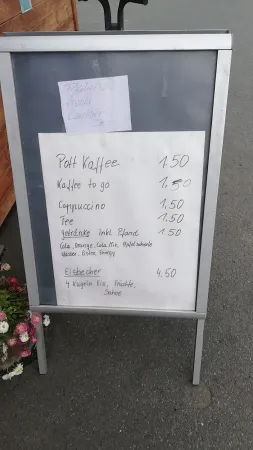 Pott Kaffee 1.50
Kaffee to go 1.50
Cappuccino 1.50
Tee 1.50
Getränke Inkl. Pfand 1.50
Cola, Orange, Cola Mix, Apfelschorle
Wasser, Extra, Energy
Eisbecher 4.50
4 Kugeln Eis, Früchte,
Sahne